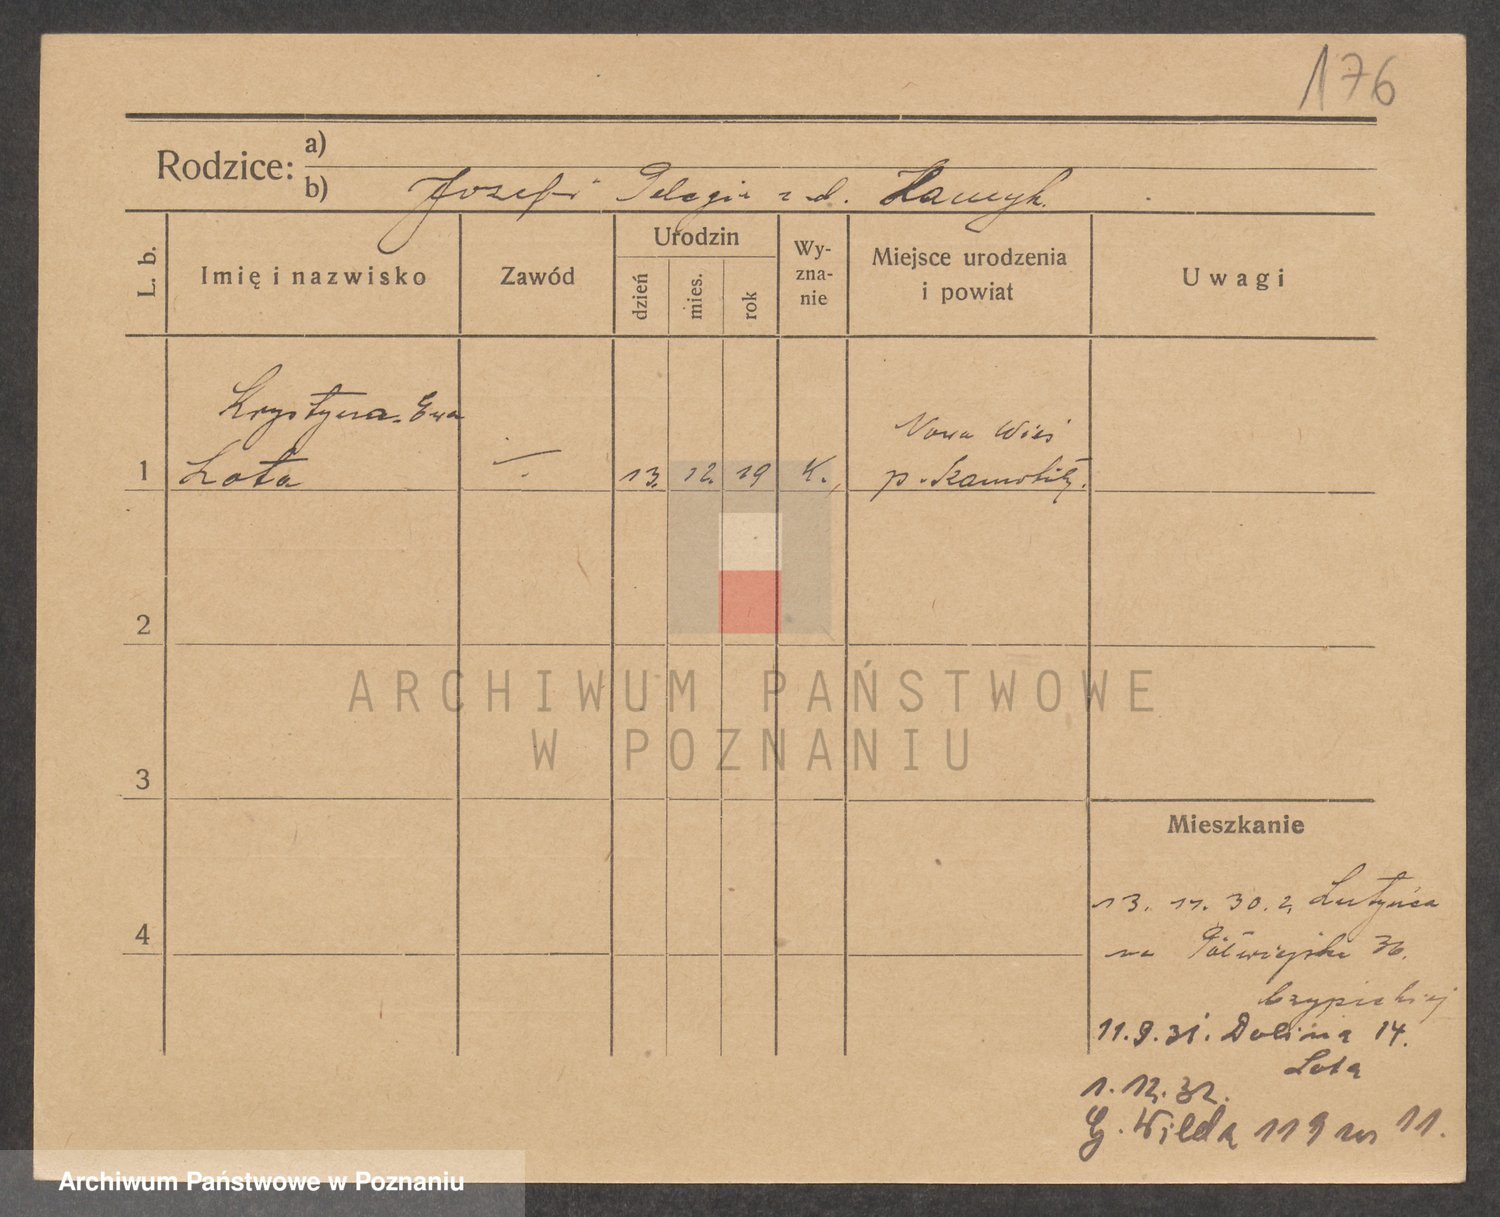 176
Rodzice:
a)
b) Józef i Pelagia z d.
L. b.
Imię i nazwisko
Zawód
Urodzin
dzień
mies.
rok
Wy-
zna-
nie
Miejsce urodzenia
i powiat
Uwagi
Krystyna-Ewa
Nowa Wieś
1 Lota — 13. 12. 19 K. p.
2
3
4
ARCHIWUM PAŃSTWOWE
W POZNANIU
Mieszkanie
13. 11. 30. z Lutynia
na Półwiejska 36.
11.9.31. Dolina 14.
Lota
1.12.32.
G. Wilda 119 m 11.
Archiwum Państwowe w Poznaniu